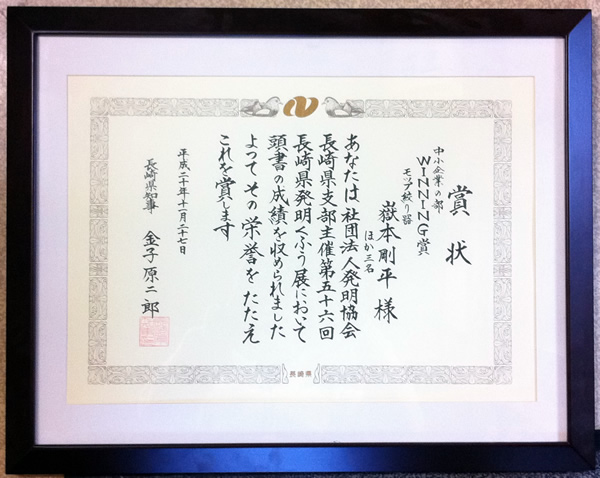 賞状
中小企業の部
WINNING賞
モップ絞り器
嶽本剛平様
ほか三名
あなたは社団法人発明協会
長崎県支部主催第五十六回
長崎県発明くふう展において
頭書の成績を収められました
よつてその栄誉をたたえ
これを賞します
平成二十年十一月二十七日
長崎県知事 金子原二郎
長崎県